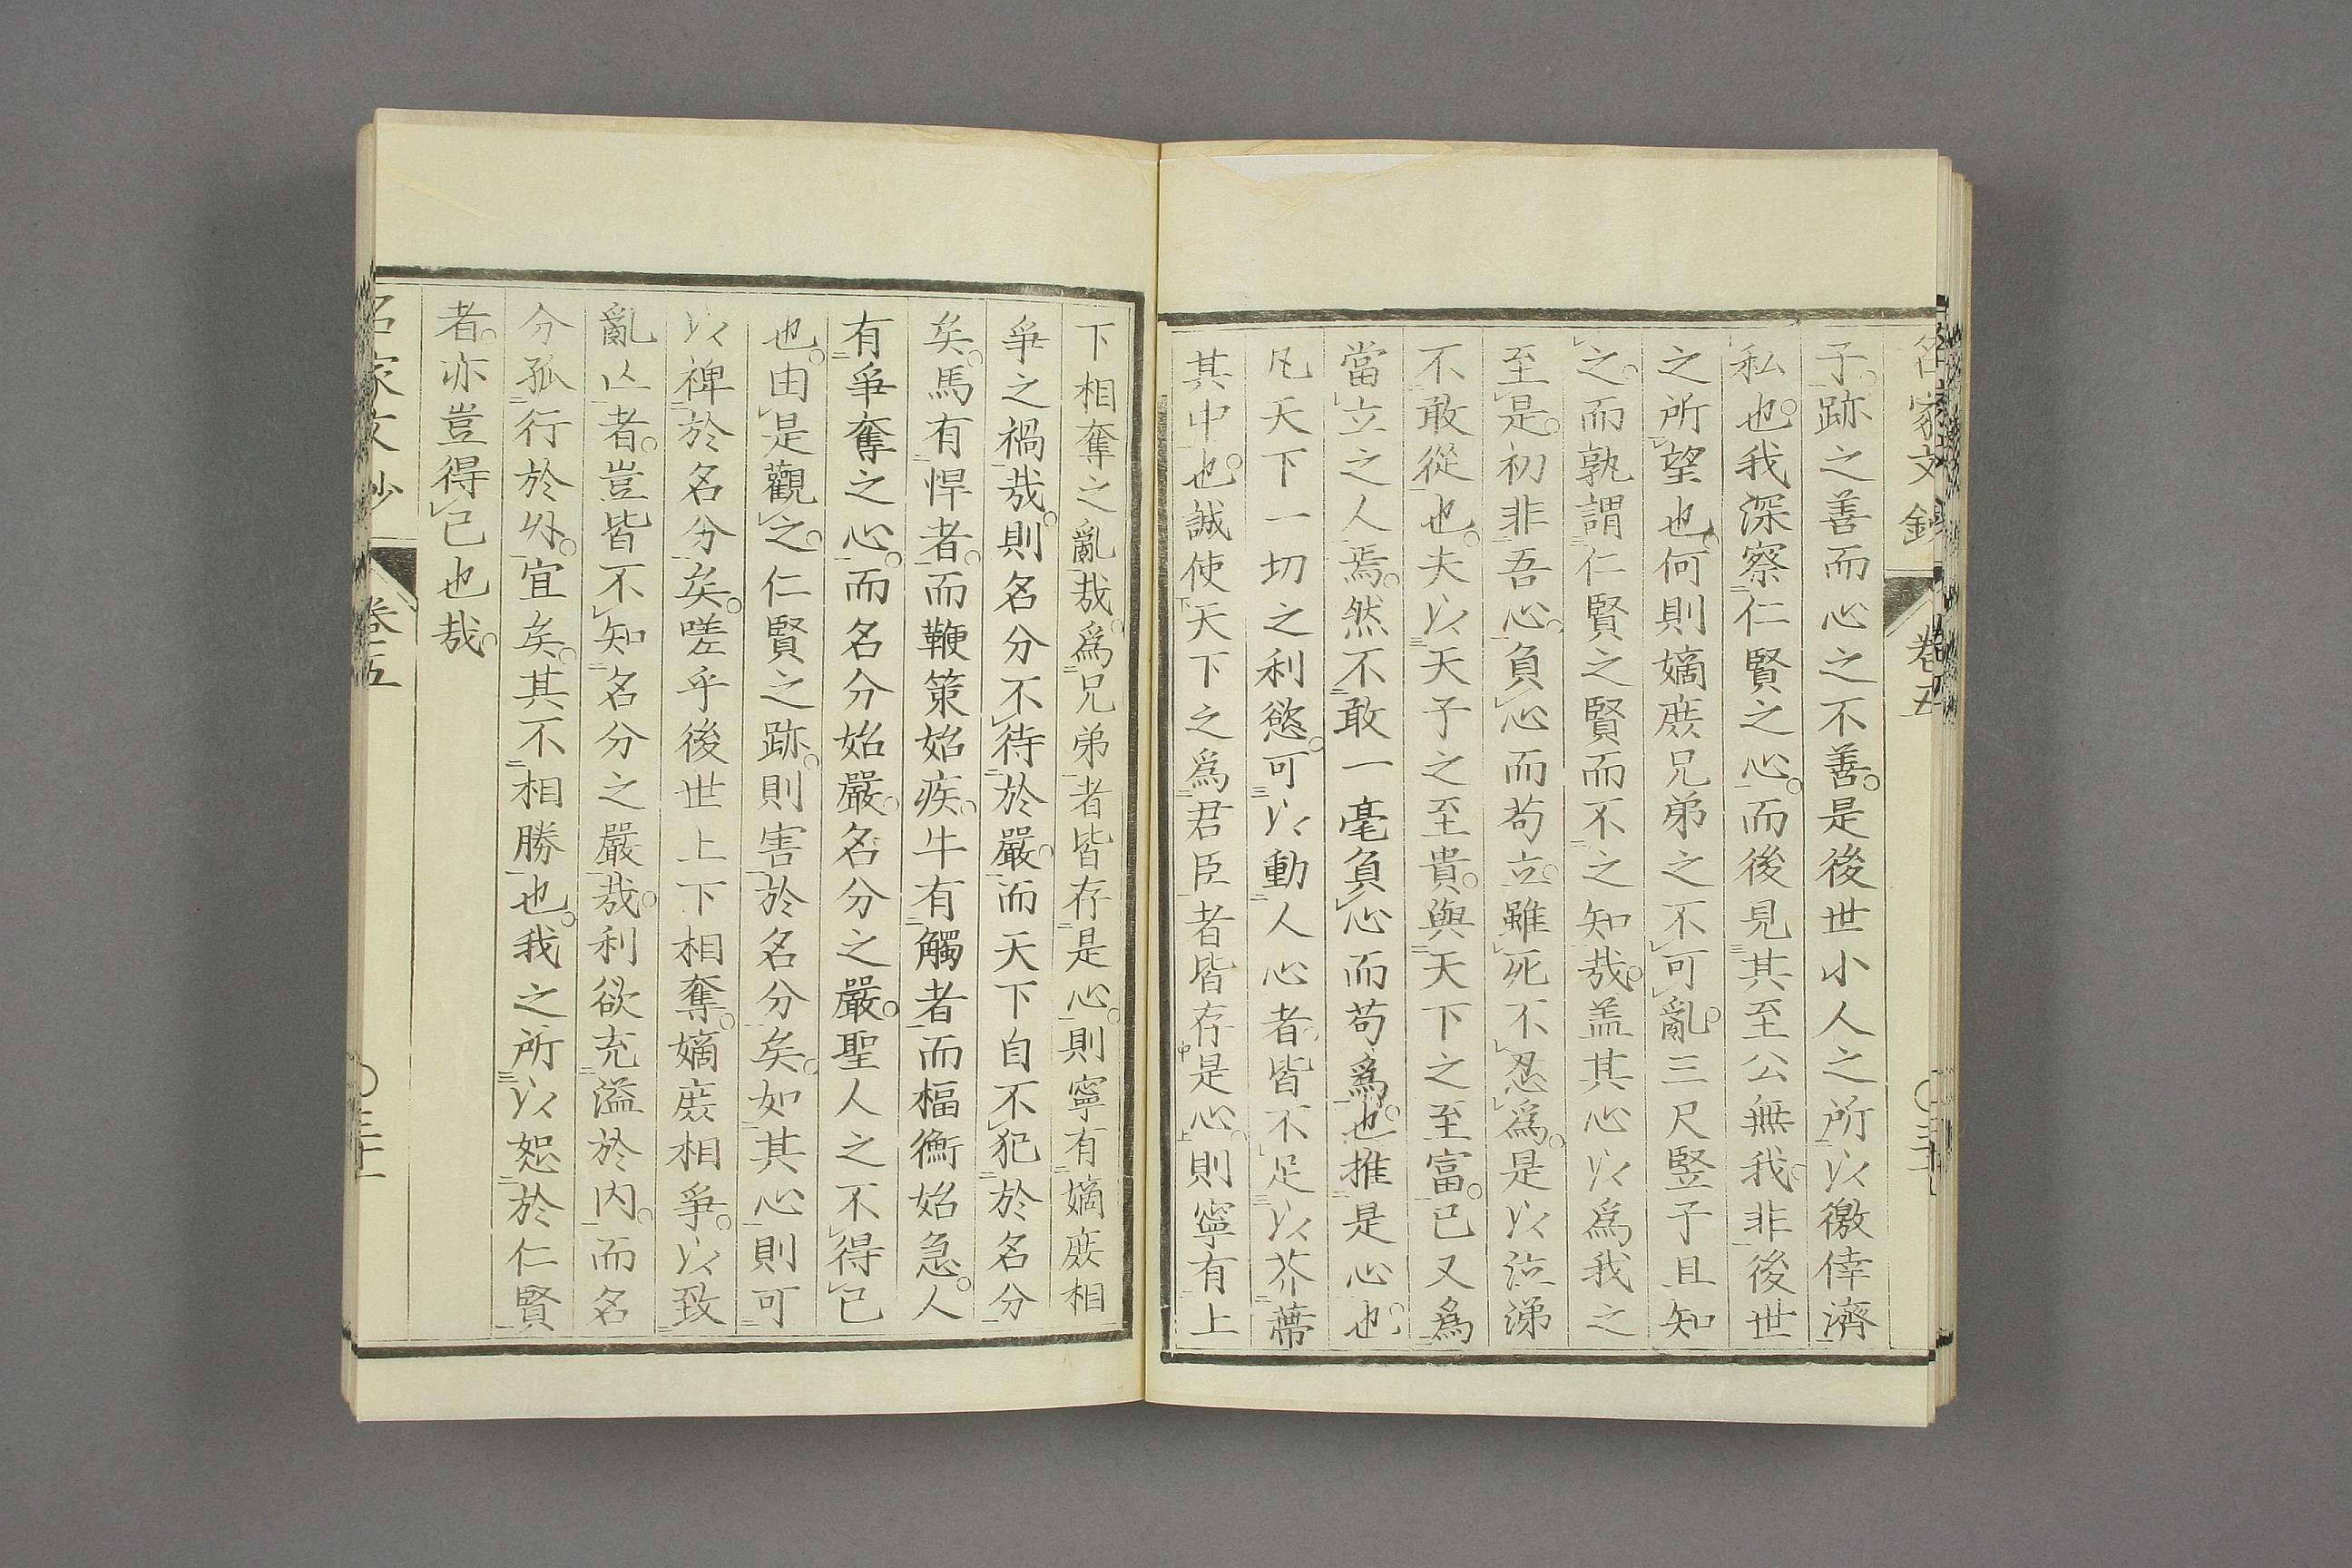 名家文鈔 卷五
子。跡之善而心之不善。是後世小人之所以徼倖濟
私也。我深察仁賢之心。而後見其至公無我。非後世
之所望也。何則嫡庶兄弟之不可亂。三尺竪子且知
之。而孰謂仁賢之賢而不之知哉。盖其心以爲我之
至是。初非吾心。負心而苟立。雖死不忍爲。是以泣涕
不敢從也。夫以天子之至貴。與天下之至富。已又爲
當立之人焉。然不敢一毫負心而苟爲也。推是心也。
凡天下一切之利慾。可以動人心者。皆不足以芥蔕
其中也。誠使天下之爲君臣者皆存是心。則寧有上
下相奪之亂哉。爲兄弟者皆存是心。則寧有嫡庶相
爭之禍哉。則名分不待於嚴。而天下自不犯於名分
矣。馬有悍者。而鞭策始疾。牛有觸者而楅衡始急。人
有爭奪之心。而名分始嚴。名分之嚴。聖人之不得已
也。由是觀之。仁賢之跡。則害於名分矣。如其心則可
以裨於名分矣。嗟乎後世上下相奪。嫡庶相爭。以致
亂亾者。豈皆不知名分之嚴哉。利欲充溢於内。而名
分孤行於外。宜矣。其不相勝也。我之所以恕於仁賢
者。亦豈得已也哉。
卷五